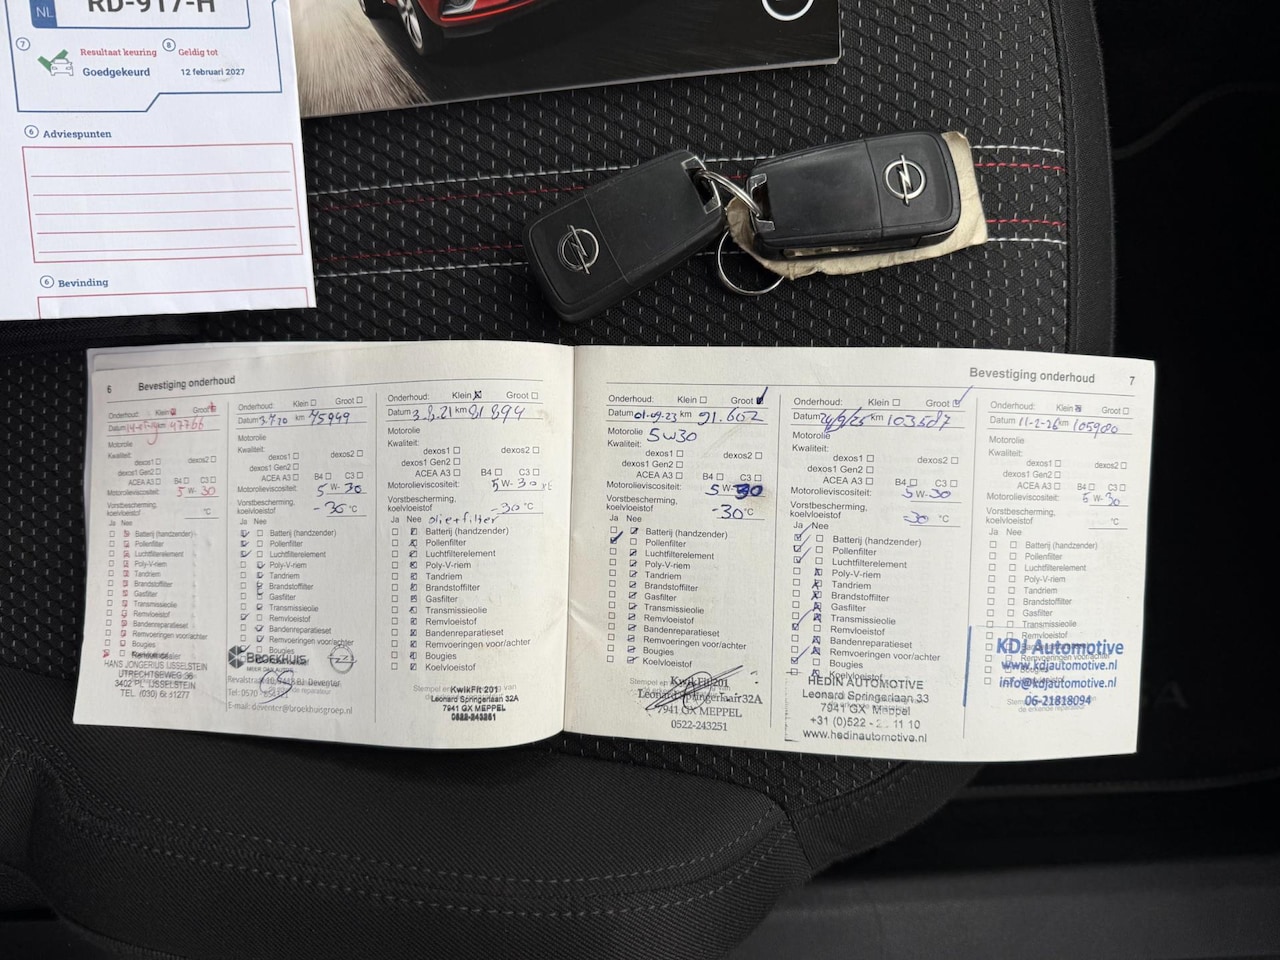 NL RD-917-H
7 Resultaat keuring 8 Geldig tot
Goedgekeurd 12 februari 2027
6 Adviespunten
6 Bevinding
6 Bevestiging onderhoud
Onderhoud: Klein Groot
Datum km 47766
Motorolie
Kwaliteit:
dexos1 dexos2
dexos1 Gen2
ACEA A3 B4 C3
Motorolieviscositeit: 5 W- 30
Vorstbescherming,
koelvloeistof °C
Ja Nee
Batterij (handzender)
Pollenfilter
Luchtfilterelement
Poly-V-riem
Tandriem
Brandstoffilter
Gasfilter
Transmissieolie
Remvloeistof
Bandenreparatieset
Remvoeringen voor/achter
Bougies
HANS JONGERIUS IJSSELSTEIN
UTRECHTSEWEG 36
3402 PL IJSSELSTEIN
TEL. (030)
Onderhoud: Klein Groot
Datum 3.7.20 km 75949
Motorolie
Kwaliteit:
dexos1 dexos2
dexos1 Gen2
ACEA A3 B4 C3
Motorolieviscositeit: 5 W- 30
Vorstbescherming,
koelvloeistof °C
Ja Nee
Batterij (handzender)
Pollenfilter
Luchtfilterelement
Poly-V-riem
Tandriem
Brandstoffilter
Gasfilter
Transmissieolie
Remvloeistof
Bandenreparatieset
Remvoeringen voor/achter
Bougies
BROEKHUIS
Deventer
E-mail: deventer@broekhuisgroep.nl
Onderhoud: Klein Groot
Datum 3.8.21 km 81 894
Motorolie
Kwaliteit:
dexos1 dexos2
dexos1 Gen2
ACEA A3 B4 C3
Motorolieviscositeit: 5 W- 30
Vorstbescherming,
koelvloeistof -30 °C
Ja Nee olie+filter
Batterij (handzender)
Pollenfilter
Luchtfilterelement
Poly-V-riem
Tandriem
Brandstoffilter
Gasfilter
Transmissieolie
Remvloeistof
Bandenreparatieset
Remvoeringen voor/achter
Bougies
Koelvloeistof
KwikFit 201
Leonard Springerlaan 32A
7941 GX MEPPEL
0522-243251
Bevestiging onderhoud 7
Onderhoud: Klein Groot
Datum 01-09-23 km 91.602
Motorolie 5W30
Kwaliteit:
dexos1 dexos2
dexos1 Gen2
ACEA A3 B4 C3
Motorolieviscositeit: 5 W- 30
Vorstbescherming,
koelvloeistof -30 °C
Ja Nee
Batterij (handzender)
Pollenfilter
Luchtfilterelement
Poly-V-riem
Tandriem
Brandstoffilter
Gasfilter
Transmissieolie
Remvloeistof
Bandenreparatieset
Remvoeringen voor/achter
Bougies
Koelvloeistof
KwikFit 201
Leonard Springerlaan 32A
7941 GX MEPPEL
0522-243251
Onderhoud: Klein Groot
Datum km
Motorolie
Kwaliteit:
dexos1 dexos2
dexos1 Gen2
ACEA A3 B4 C3
Motorolieviscositeit: 5 W- 30
Vorstbescherming,
koelvloeistof -30 °C
Ja Nee
Batterij (handzender)
Pollenfilter
Luchtfilterelement
Poly-V-riem
Tandriem
Brandstoffilter
Gasfilter
Transmissieolie
Remvloeistof
Bandenreparatieset
Remvoeringen voor/achter
Bougies
Koelvloeistof
HEDIN AUTOMOTIVE
Leonard Springerlaan 33
7941 GX Meppel
+31 (0)522 - 11 10
www.hedinautomotive.nl
Onderhoud: Klein Groot
Datum 11-2-26 km 105900
Motorolie
Kwaliteit:
dexos1 dexos2
dexos1 Gen2
ACEA A3 B4 C3
Motorolieviscositeit: 5 W- 30
Vorstbescherming,
koelvloeistof °C
Ja Nee
Batterij (handzender)
Pollenfilter
Luchtfilterelement
Poly-V-riem
Tandriem
Brandstoffilter
Gasfilter
Transmissieolie
KDJ Automotive
www.kdjautomotive.nl
info@kdjautomotive.nl
06-21818094